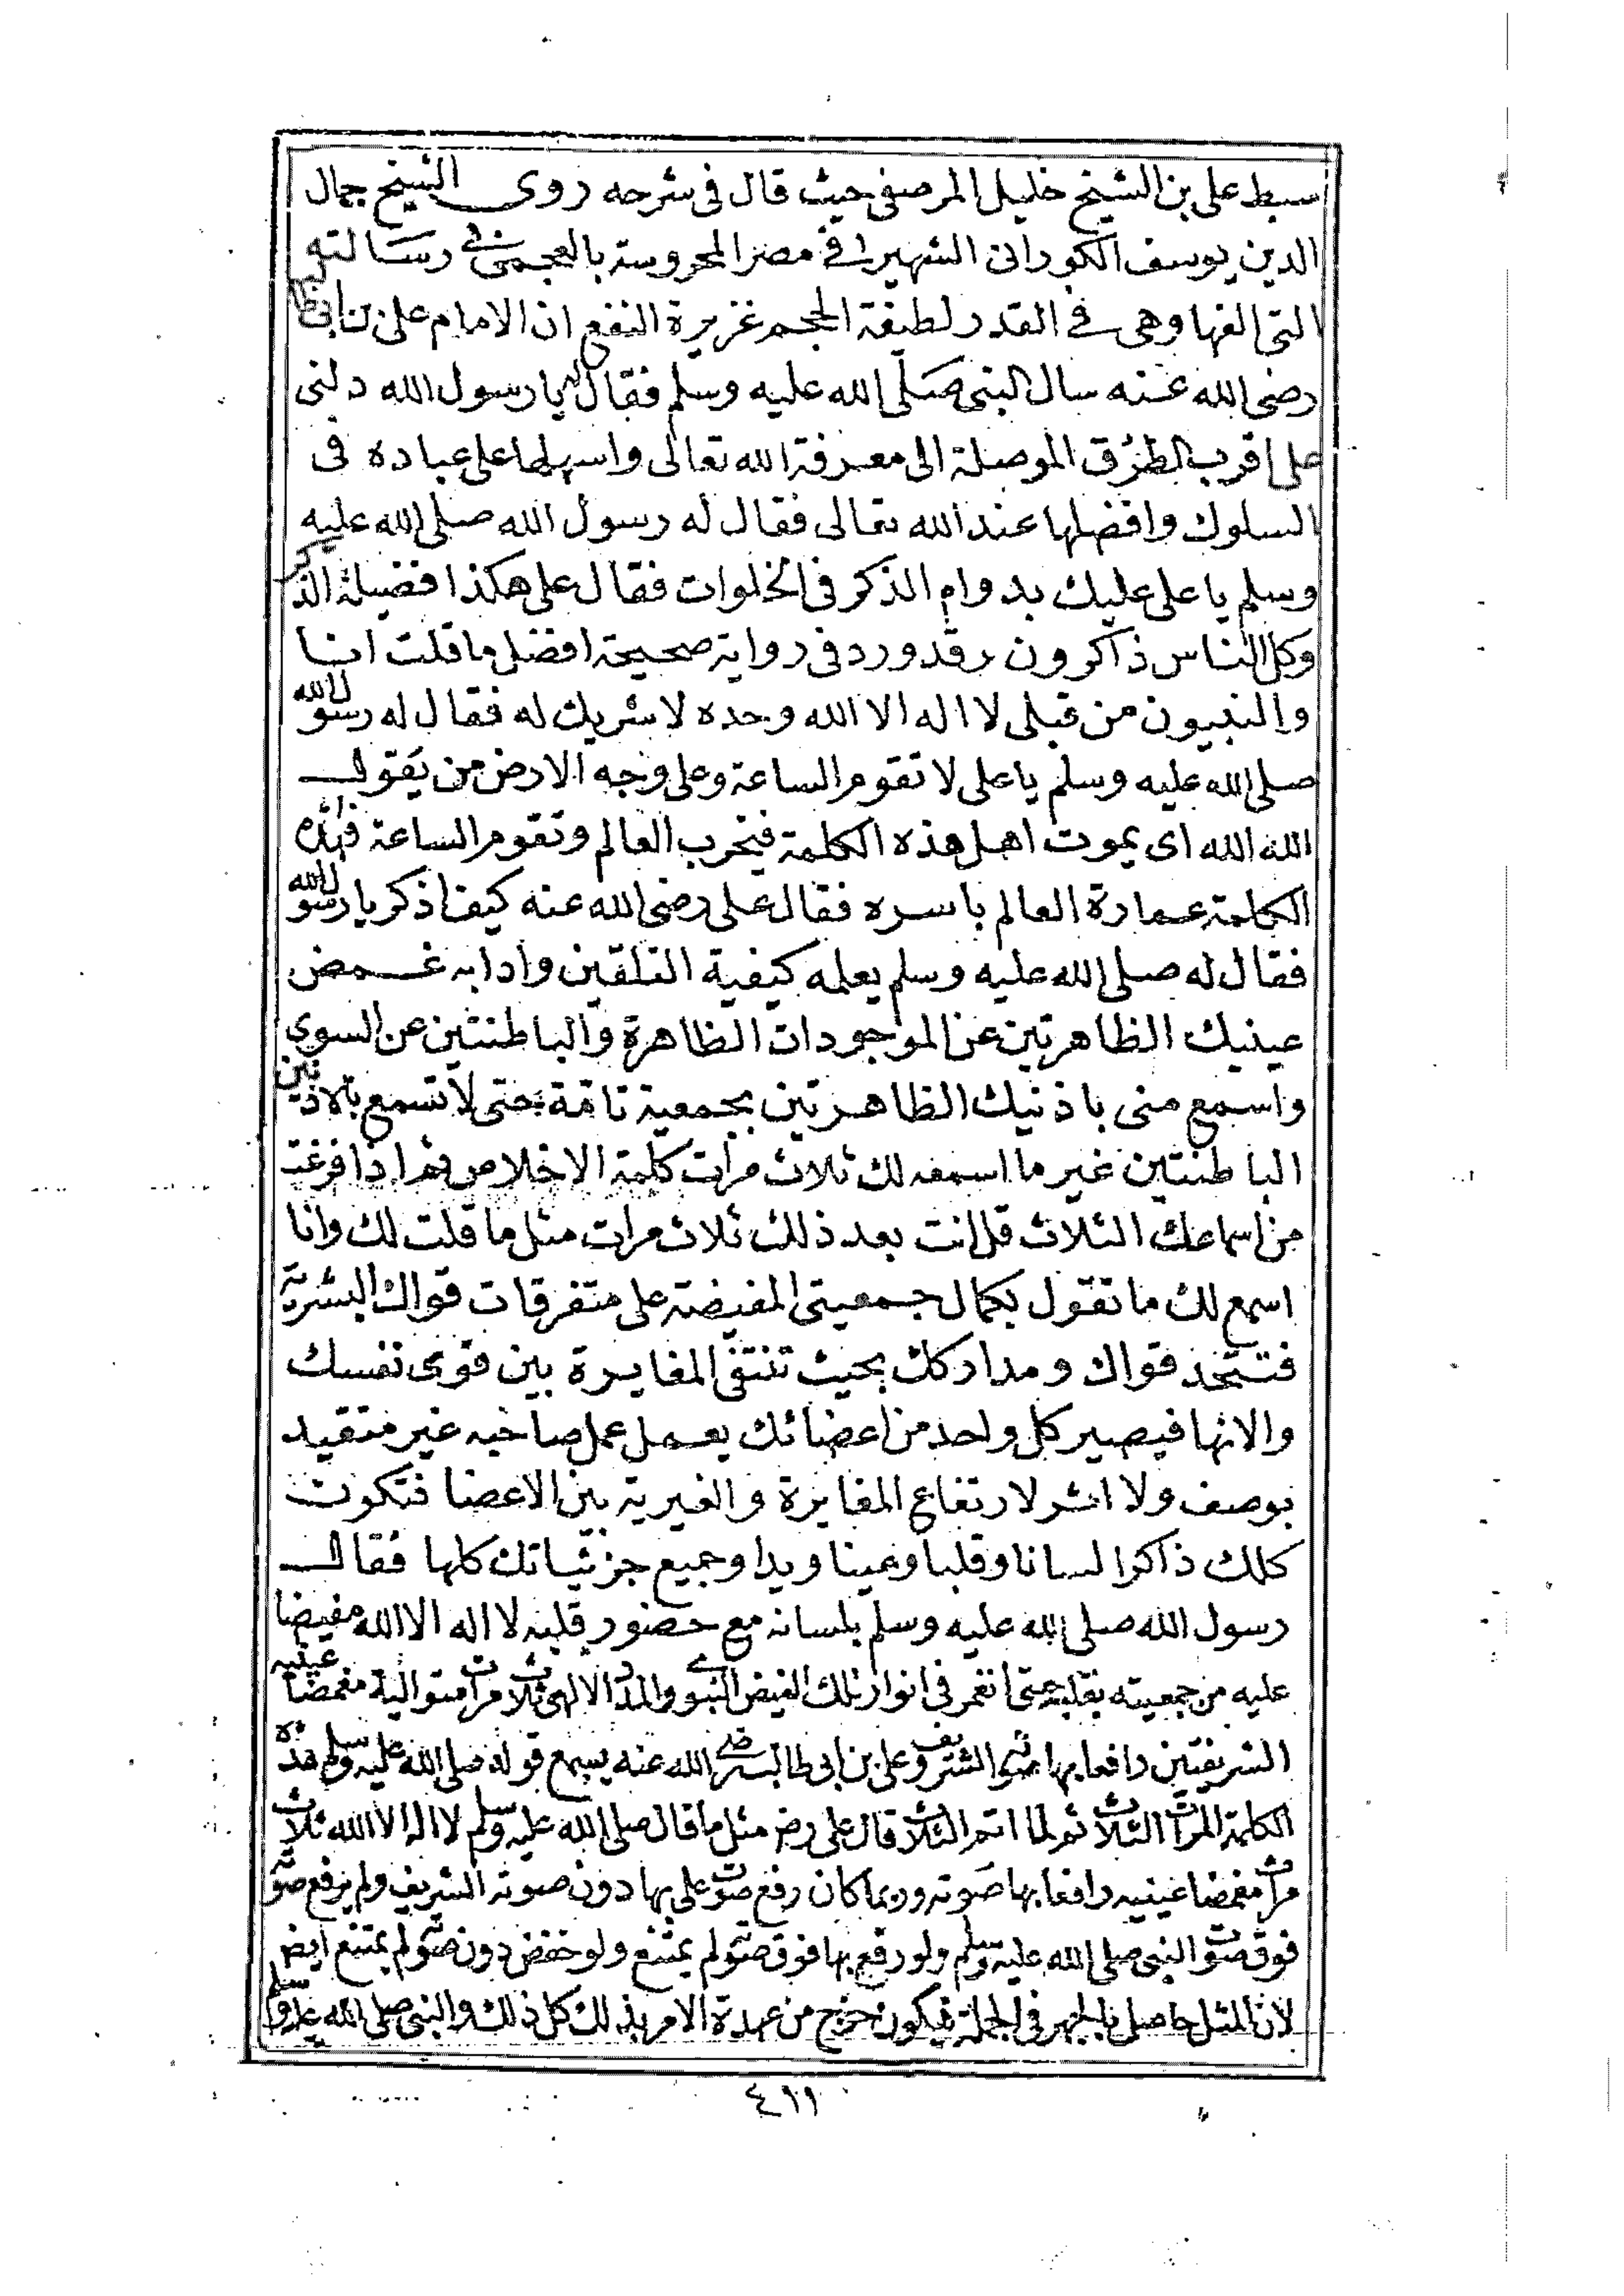 سبط على بن الشيخ خليل المرصفى حيث قال فى شرحه روى الشيخ جمال
الدين يوسف الكورانى الشهير فى مصر المحروسة بالعجمى فى رسالته
التى الفها وهى فى القدر لطيفة الحجم غزيرة النفع ان الامام على بن ابى طالب
رضى الله عنه سال النبى صلى الله عليه وسلم فقال له يا رسول الله دلنى
على اقرب الطرق الموصلة الى معرفة الله تعالى واسهلها على عباده فى
السلوك وافضلها عند الله تعالى فقال له رسول الله صلى الله عليه
وسلم يا على عليك بدوام الذكر فى الخلوات فقال على هكذا فضيلة الذكر
وكل الناس ذاكرون وقد ورد فى رواية صحيحة افضل ما قلت انا
والنبيون من قبلى لا اله الا الله وحده لا شريك له فقال له رسول الله
صلى الله عليه وسلم يا على لا تقوم الساعة وعلى وجه الارض من يقول
الله الله اى يموت اهل هذه الكلمة فيخرب العالم وتقوم الساعة فهذه
الكلمة عمارة العالم باسره فقال على رضى الله عنه كيف اذكر يا رسول الله
فقال له صلى الله عليه وسلم يعلمه كيفية التلقين وادابه غمض
عينيك الظاهرتين عن الموجودات الظاهرة والباطنتين عن السوى
واسمع منى باذنيك الظاهرتين بجمعية تامة حتى لا تسمع بالاذنين
الباطنتين غير ما اسمعه لك ثلاث مرات كلمة الاخلاص فمر اذا فرغت
من اسماعك الثلاث قل انت بعد ذلك ثلاث مرات مثل ما قلت لك وانا
اسمع لك ما تقول بكمال جمعيتى المفيضة على متفرقات قواك البشرية
فتتحد قواك ومداركك بحيث تنتفى المغايرة بين قوى نفسك
والاتها فيصير كل واحد من اعضائك يعمل عمل صاحبه غير متقيد
بوصف ولا اثر لارتفاع المغايرة والغيرية بين الاعضا فتكون
كلك ذاكرا لسانا وقلبا وعينا ويدا وجميع جزئياتك كلها فقال
رسول الله صلى الله عليه وسلم بلسانه مع حضور قلبه لا اله الا الله مفيضا
عليه من جمعيته بقلبه حتى انغمر فى انوار تلك الفيض النبوى والمدد الالهى ثلاث مرات متوالية مغمضا عينيه
الشريفتين رافعا بها صوته الشريف وعلى بن ابى طالب رضى الله عنه يسمع قوله صلى الله عليه وسلم هذه
الكلمة المرات الثلاث ثم لما اتم الثلاث قال على رضه مثل ما قال صلى الله عليه وسلم لا اله الا الله ثلاث
مرات مغمضا عينيه رافعا بها صوته وربما كان رفع صوت على بها دون صوته الشريف ولم يرفع صوته
فوق صوت النبى صلى الله عليه وسلم ولو رفع بها فوق صوته لم يمتنع ولو خفض دون صوته لم يمتنع ايض
لان المثل حاصل بالجهر فى الجملة فيكون خرج من عهدة الامر بذلك كل ذلك والنبى صلى الله عليه وسلم
٤١١